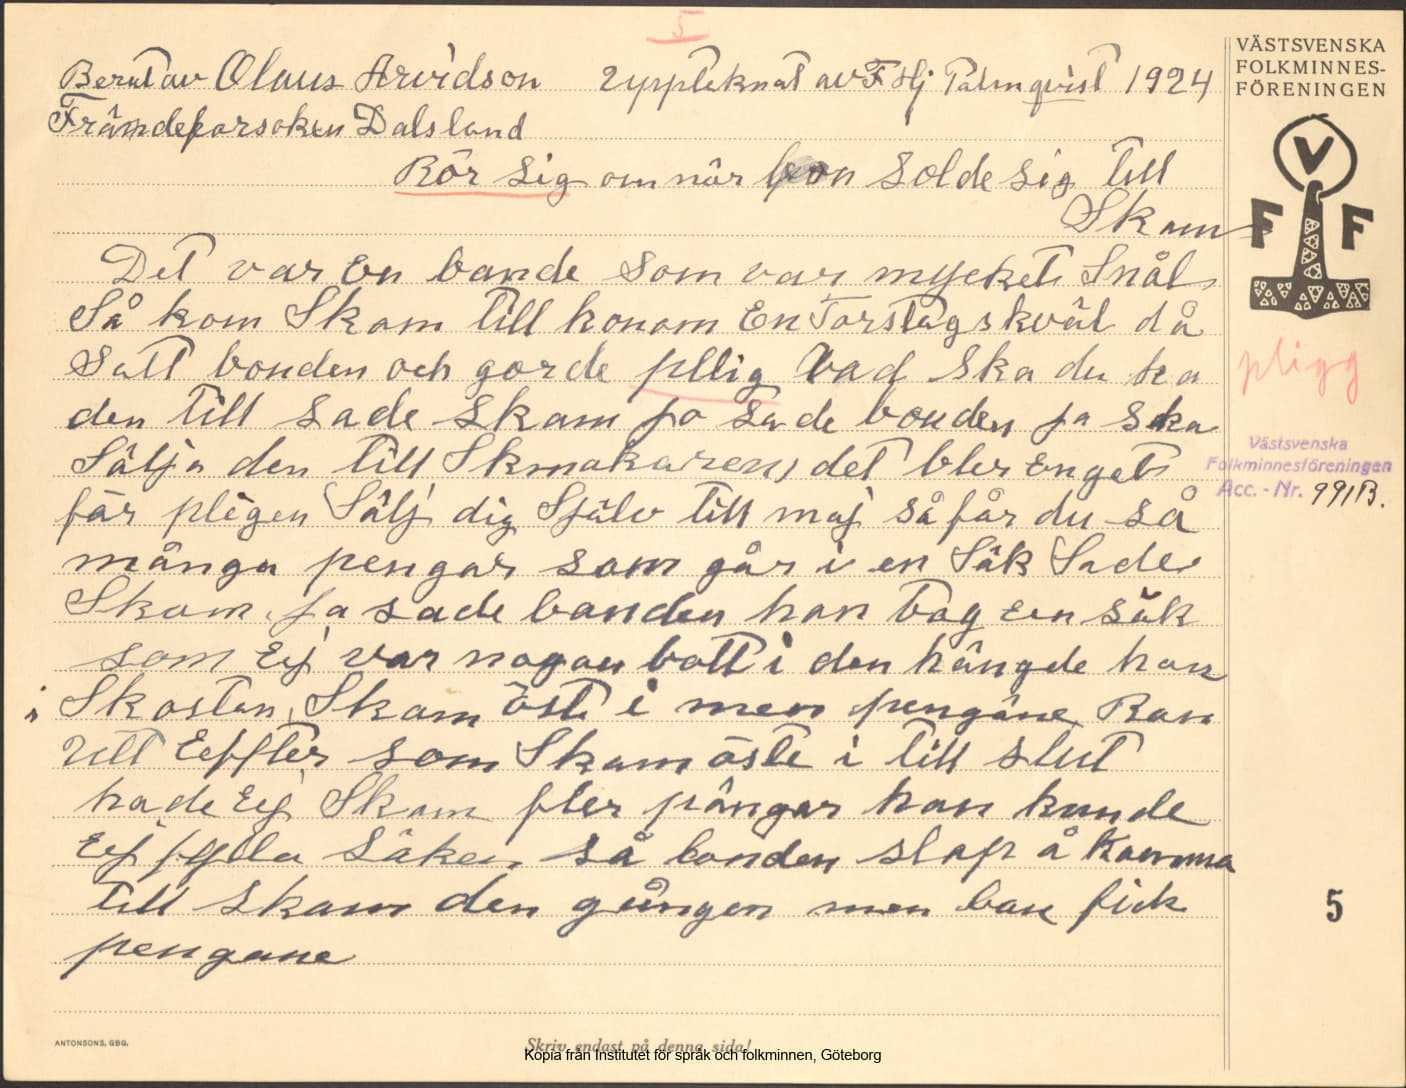 5
VÄSTSVENSKA
FOLKMINNES-
FÖRENINGEN
Berat av Olaus Arvidson uppteknat av F Hj Palmqvist 1924
Främdeforsoken Dalsland
Rör sig om när bon solde sig till
Skam
V F F
Det var En bonde som var mycket Snål
Så kom Skam till honom En Torstagskväl då
Satt bonden och gorde pllig Vad ska du ha
den till sade Skam jo sade bonden ja ska
Sälja den till Skmakaren, det bler Enget
fär pligen Sälj dig Själv till maj så får du så
många pengar som går i en Säk Sade
Skam, ja sade bonden han tog en säk
som Eij var nogon bott i den hängde han
i Skosten, Skam öste i men pengane Ran
Utt Eeffter som Skam öste i till slut
hade Eij Skam fler pängar han kunde
Eij fylla Säken så bonden slap å komma
till skam den gången men han fick
pengane
pligg
Västsvenska
Folkminnesföreningen
Acc. - Nr. 991B.
5
ANTONSONS, GBG.
Skriv endast på denna sida!
Kopia från Institutet för språk och folkminnen, Göteborg